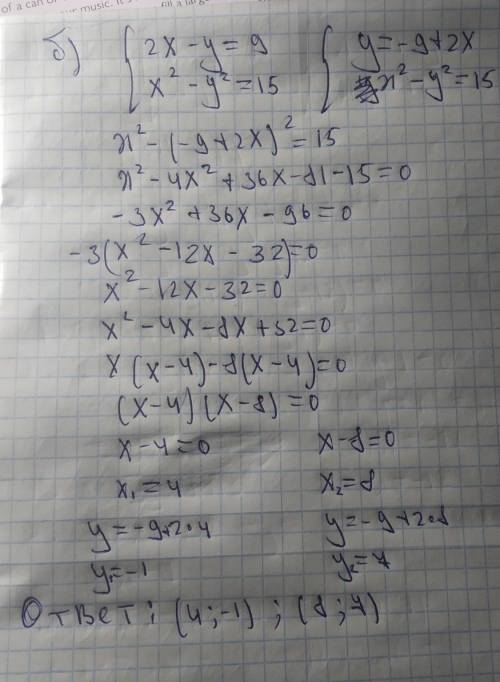 of a can or
our music. It's
fill a large
б) { 2x - y = 9 { y = -9 + 2x
x² - y² = 15 x² - y² = 15
x² - (-9 + 2x)² = 15
x² - 4x² + 36x - 81 - 15 = 0
-3x² + 36x - 96 = 0
-3(x² - 12x - 32) = 0
x² - 12x - 32 = 0
x² - 4x - 8x + 32 = 0
x (x - 4) - 8(x - 4) = 0
(x - 4) (x - 8) = 0
x - 4 = 0 x - 8 = 0
x₁ = 4 x₂ = 8
y = -9 + 2·4 y = -9 + 2·8
y₁ = -1 y₂ = 7
Ответ: (4; -1) ; (8; 7)